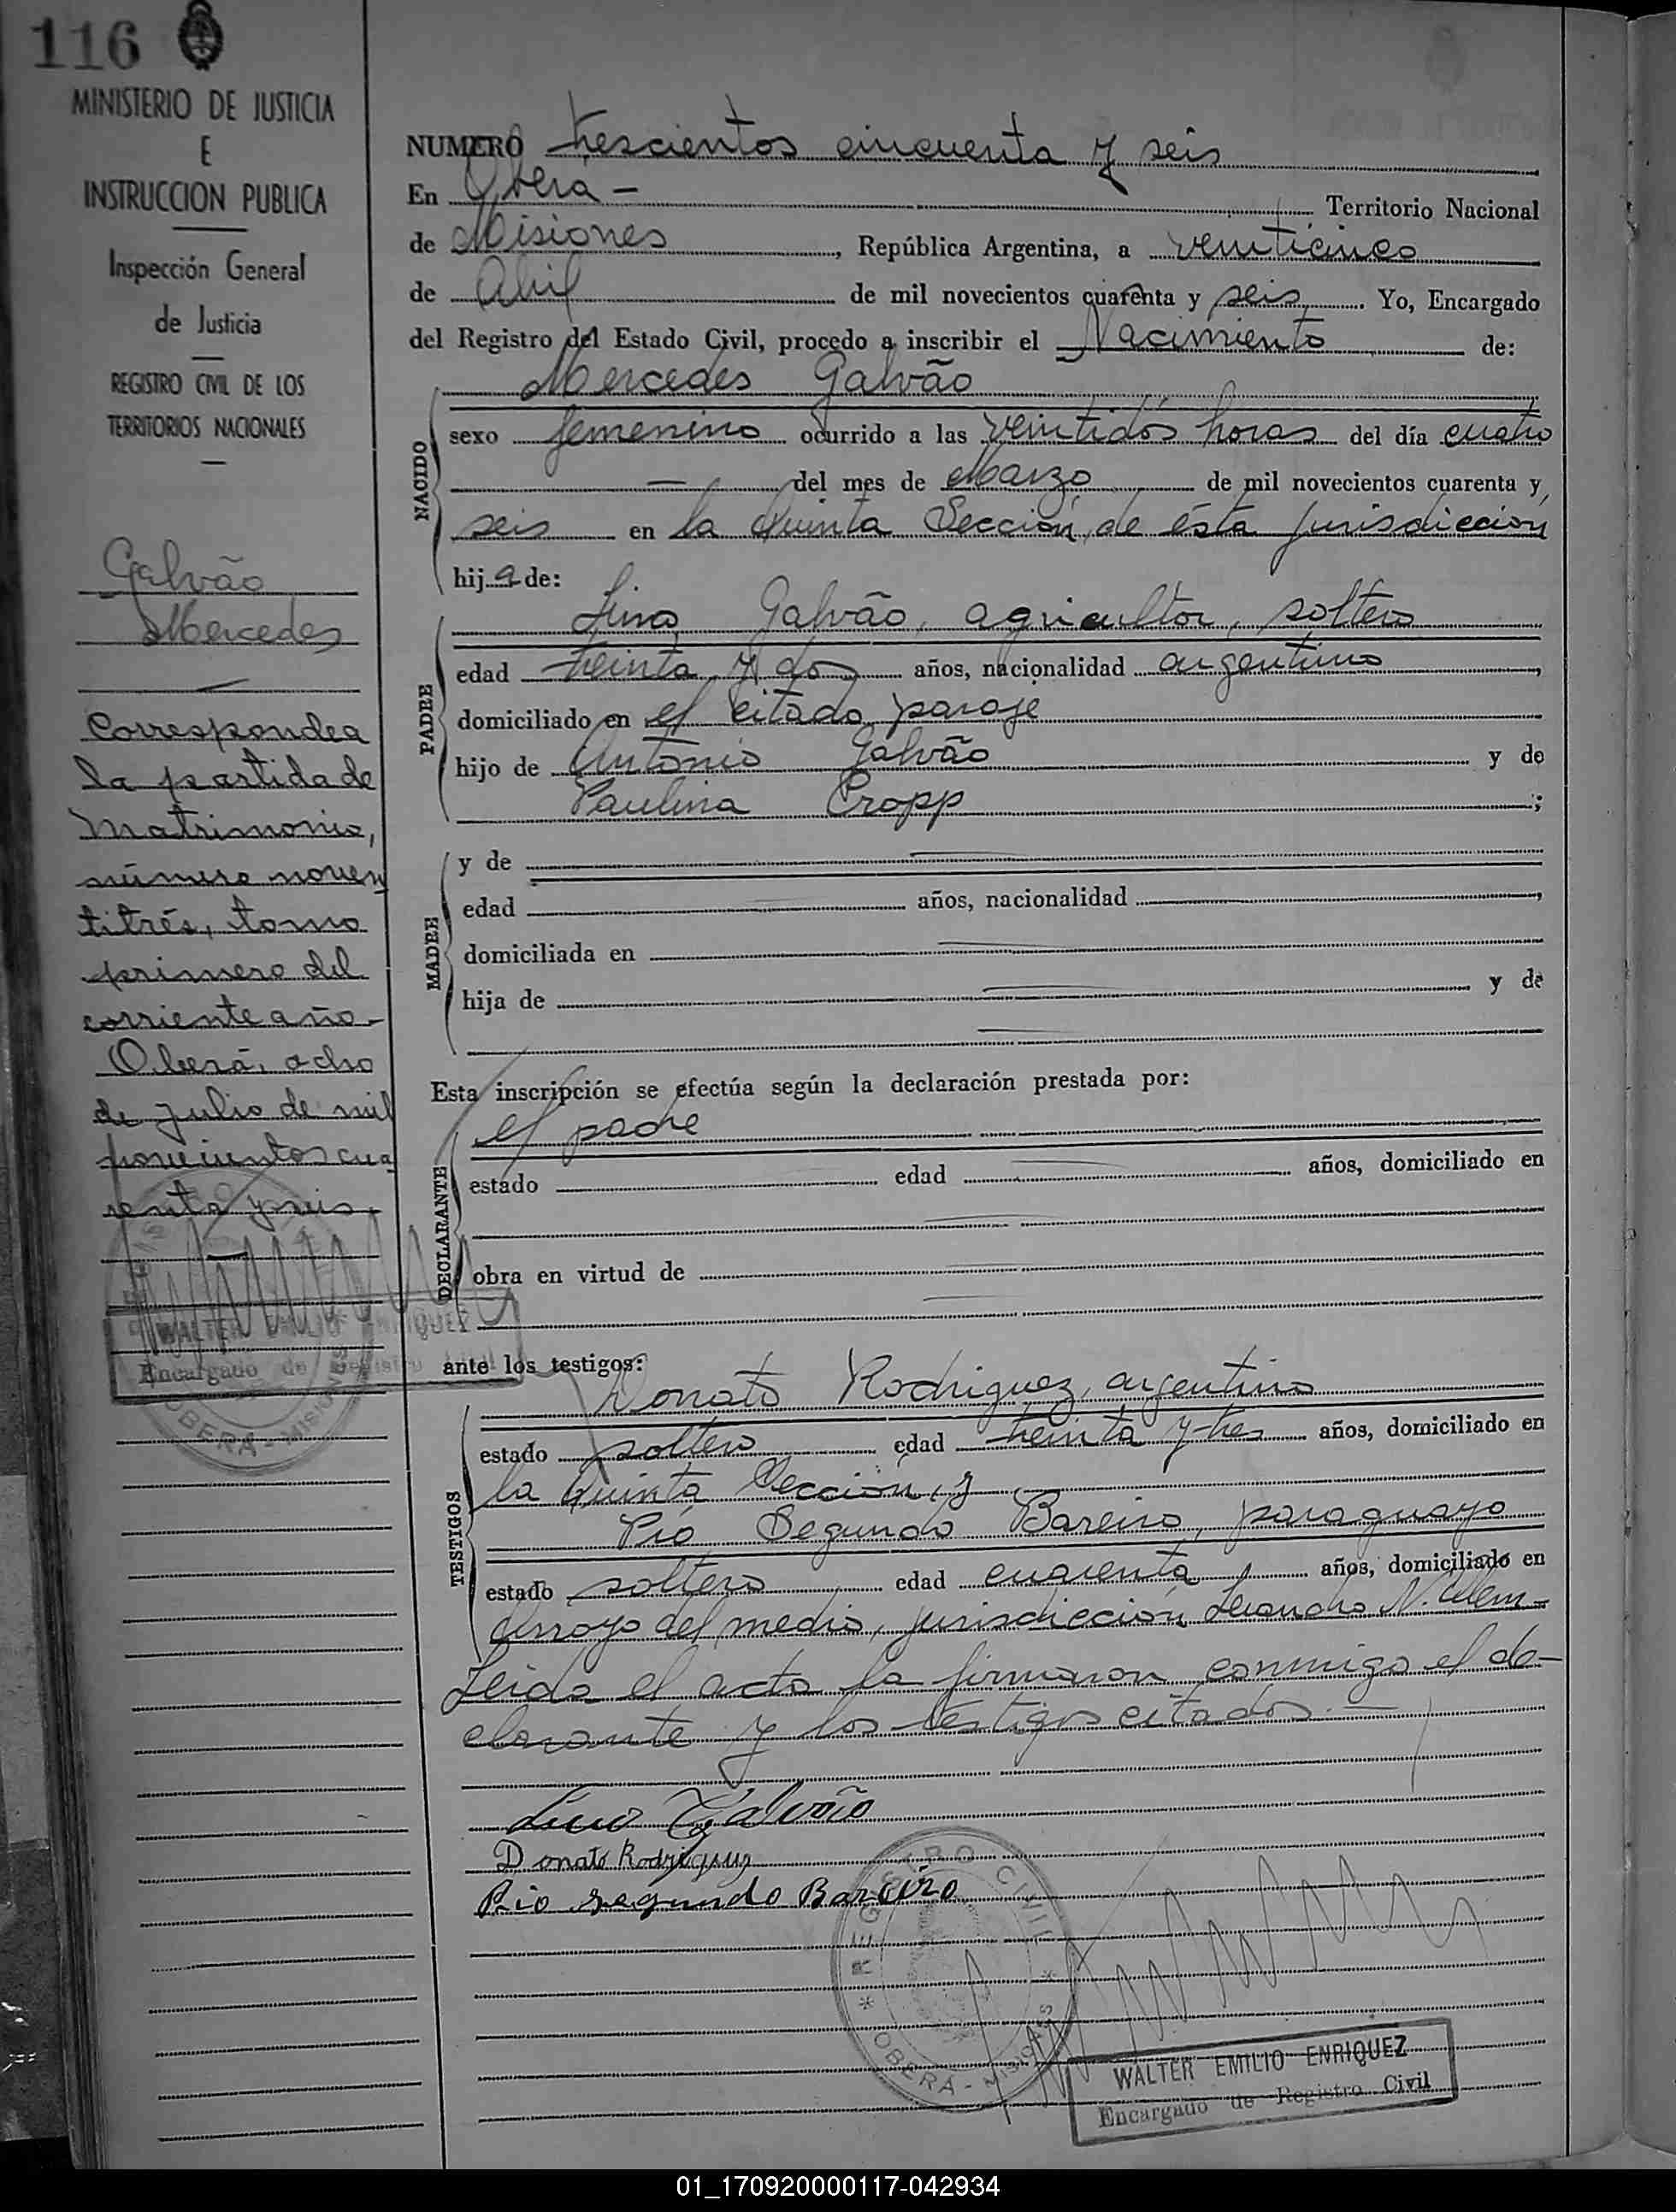 116
MINISTERIO DE JUSTICIA
E
INSTRUCCION PUBLICA
Inspección General
de Justicia
REGISTRO CIVIL DE LOS
TERRITORIOS NACIONALES
Galvão
Mercedes
Corresponde a
la partida de
Matrimonio,
número noven
titrés, tomo
primero del
corriente año.
Oberá, ocho
de julio de mil
novecientos cua
renta y seis.
WALTER EMILIO ENRIQUEZ
Encargado de Registro
OBERA - MISIONES
NUMERO trescientos cincuenta y seis
En Obera - Territorio Nacional
de Misiones, República Argentina, a veinticinco
de Abril de mil novecientos cuarenta y seis. Yo, Encargado
del Registro del Estado Civil, procedo a inscribir el Nacimiento de:
Mercedes Galvão
NACIDO
sexo femenino ocurrido a las veintidós horas del día cuatro
— del mes de Marzo de mil novecientos cuarenta y
seis en la Quinta Sección, de ésta jurisdicción
hija de:
PADRE
Lino Galvão, agricultor, soltero
edad treinta y dos años, nacionalidad argentino,
domiciliado en el citado paraje
hijo de Antonio Galvão y de
Paulina Cropp;
MADRE
y de
edad años, nacionalidad ,
domiciliada en
hija de y de
Esta inscripción se efectúa según la declaración prestada por:
DECLARANTE
el padre
estado edad años, domiciliado en
obra en virtud de
ante los testigos:
TESTIGOS
Donato Rodriguez, argentino
estado soltero edad treinta y tres años, domiciliado en
la Quinta Sección, y
Pio Segundo Bareiro, paraguayo
estado soltero edad cuarenta años, domiciliado en
Arroyo del medio, jurisdicción Leandro N. Alem-
Leida el acta la firmaron conmigo el de-
clarante y los testigos citados. —
Lino Galvão
Donato Rodriguez
Pio Segundo Bareiro
REGISTRO CIVIL
* OBERA - MISIONES *
WALTER EMILIO ENRIQUEZ
Encargado de Registro Civil
01_170920000117-042934